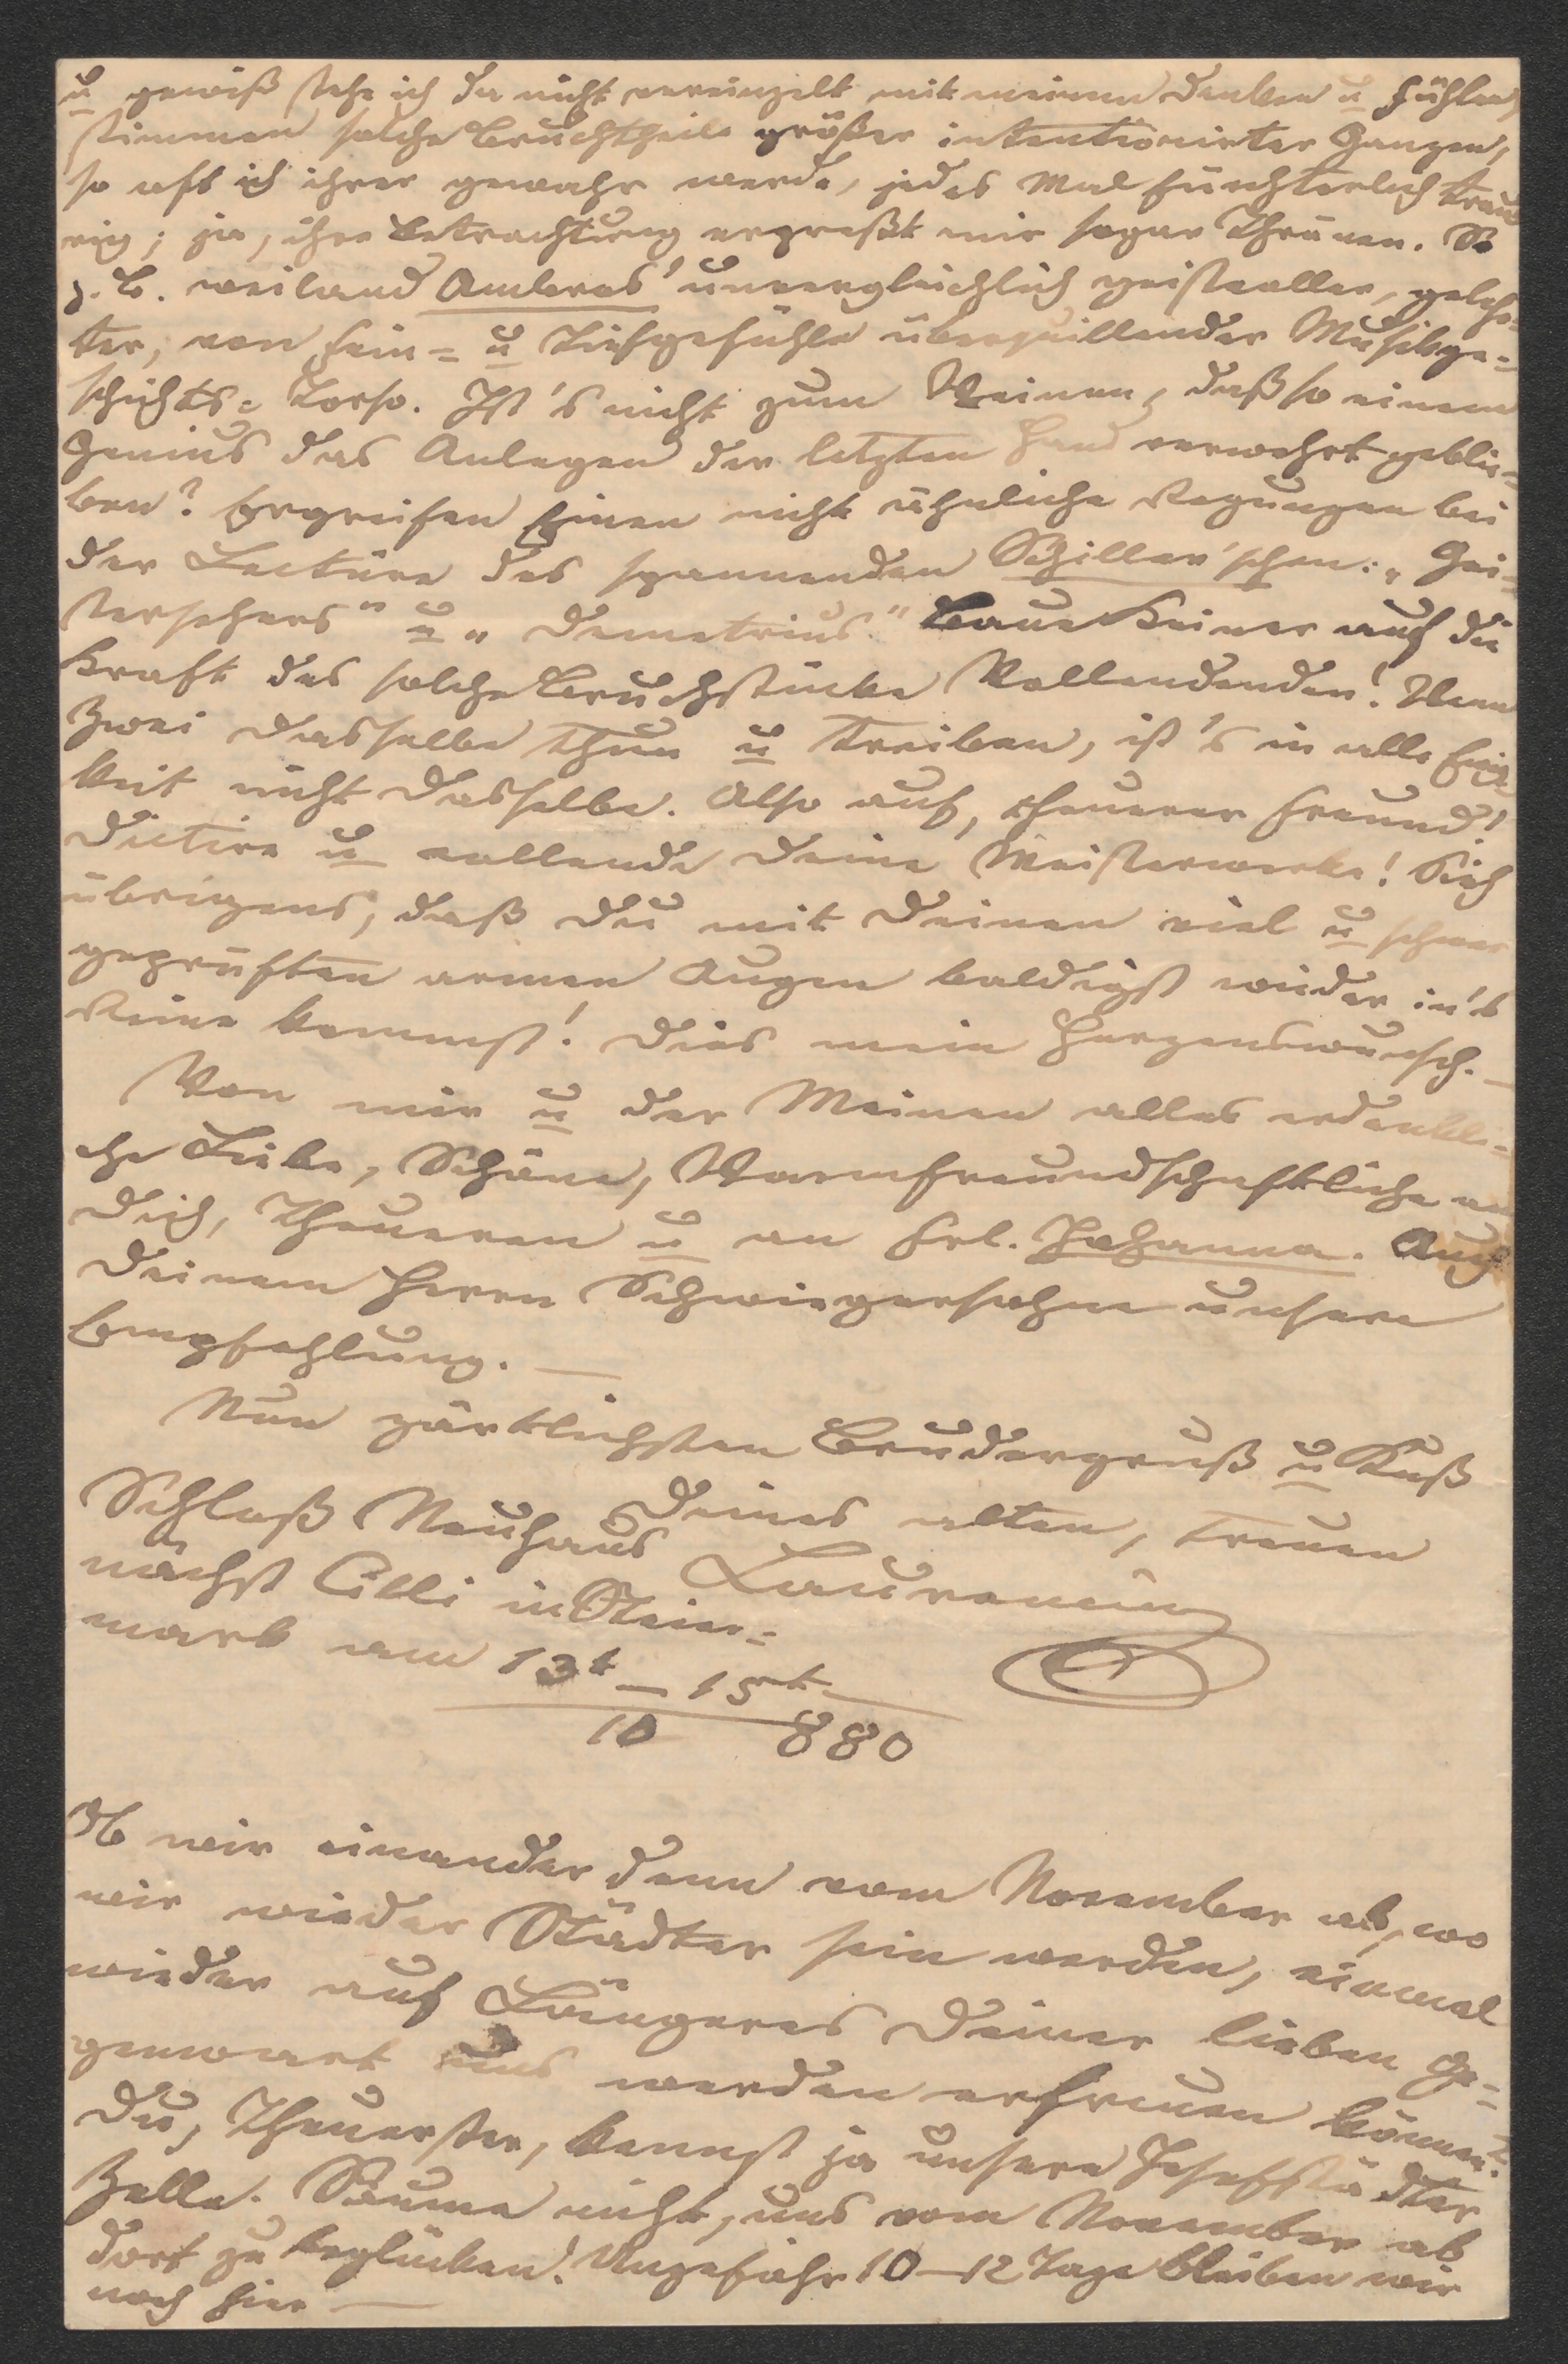 u gewiß stehe ich da nicht vereinzelt mit meinem Denken u Fühlen,
stimmen solche Bruchtheile größer intentionirter Ganzen,
so oft ich ihrer gewahr werde, jedes Mal fürchterlich trau
rig; ja, ihre Betrachtung erpreßt mir sogar Thränen. So
z. B. weiland Ambros' unvergleichlich geistvoller, gelehr=
ter, von Fein= u Tiefgefühle überquillender Musikge=
schichts= Torso. Ist's nicht zum Weinen, daß so einem
Genius das Anlegen der letzten Hand verwehrt geblie=
ben? Ergreifen Einen nicht ähnliche Regungen bei
der Lectüre des spannenden Schiller'schen: „Gei=
stersehers" u „Demetrius." Baue Keiner auf die
Kraft des solche Bruchstücke Vollendenden! Wenn
Zwei dasselbe thun u treiben, ist's in alle Ewig
keit nicht dasselbe. Also auf, theurer Freund!
Dictire u vollende Deine Meisterwerke! Sieh
übrigens, daß Du mit Deinen viel u schwer
geprüften armen Augen baldigst wieder in's
Reine kommst! Dies mein Herzenswunsch. —
Von mir u der Meinen alles erdenkli=
che Liebe, Schöne, Warmfreundschaftliche an
Dich, Theueren u an Frl. Johanna. Auch
Deinem Herrn Schwiegersohne unsere
Empfehlung. —
Nun zärtlichsten Brudergruß u Kuß
Deines alten, treuen
Laurencin
Schloß Neuhaus
nächst Cilli in Steier=
mark am 13t — 15t
10 880
Ob wir einander denn vom November ab, wo
wir wieder Städter sein werden, einmal
wieder auf Längeres Deiner lieben Ge=
genwart uns werden erfreuen können?
Du, Theuerster, kennst ja unsere Josefstädter
Zelle. Säume nicht, uns vom November ab
dort zu beglücken! Ungefähr 10—12 Tage bleiben wir
noch hier —